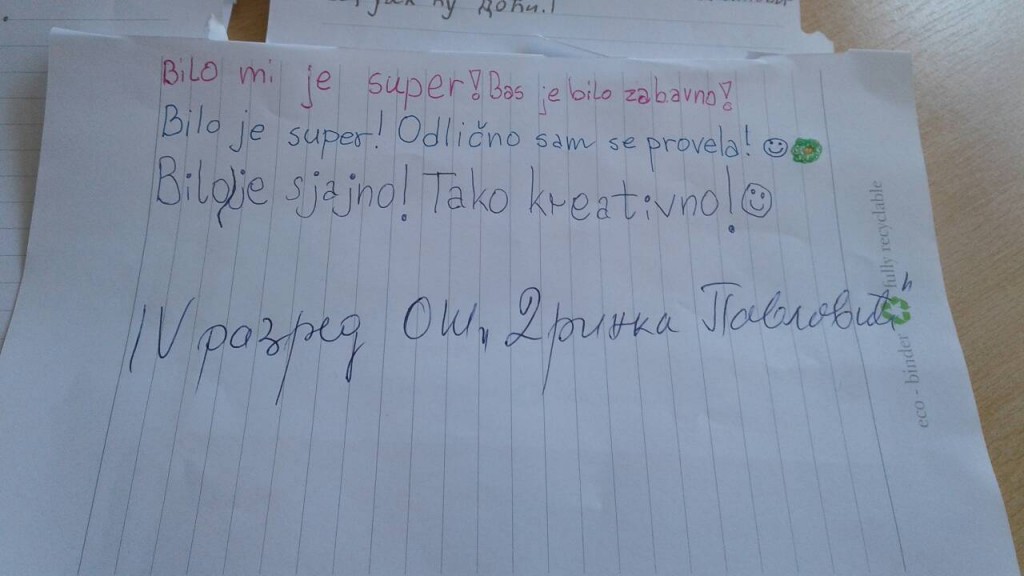 јак ћу доћи.!
Bilo mi je super! Bas je bilo zabavno!
Bilo je super! Odlično sam se provela!
Bilo je sjajno! Tako kreativno!
IV разред ОШ „Дринка Павловић“
eco - binder fully recyclable